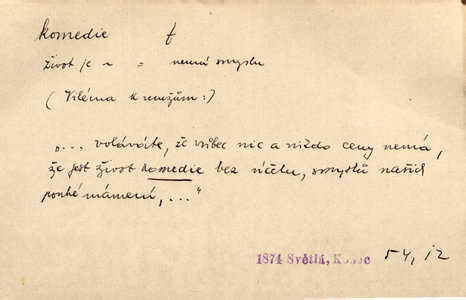 komedie f
život je ~ = nemá smyslu
(Viléma k mužům:)
„... voláváte, že vůbec nic a nikdo ceny nemá,
že jest život komedie bez účelu, smyslů našich
pouhé mámení, ..."
1874 Světlá, Konec 54, 12